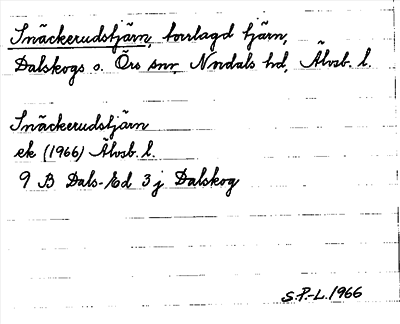 Snäckerudstjärn, torrlagd tjärn,
Dalskogs o. Örs snr, Nndals hd, Älvsb. l.
Snäckerudstjärn
ek (1966) Älvsb. l.
9 B Dals-Ed 3 j Dalskog
S.P.-L. 1966